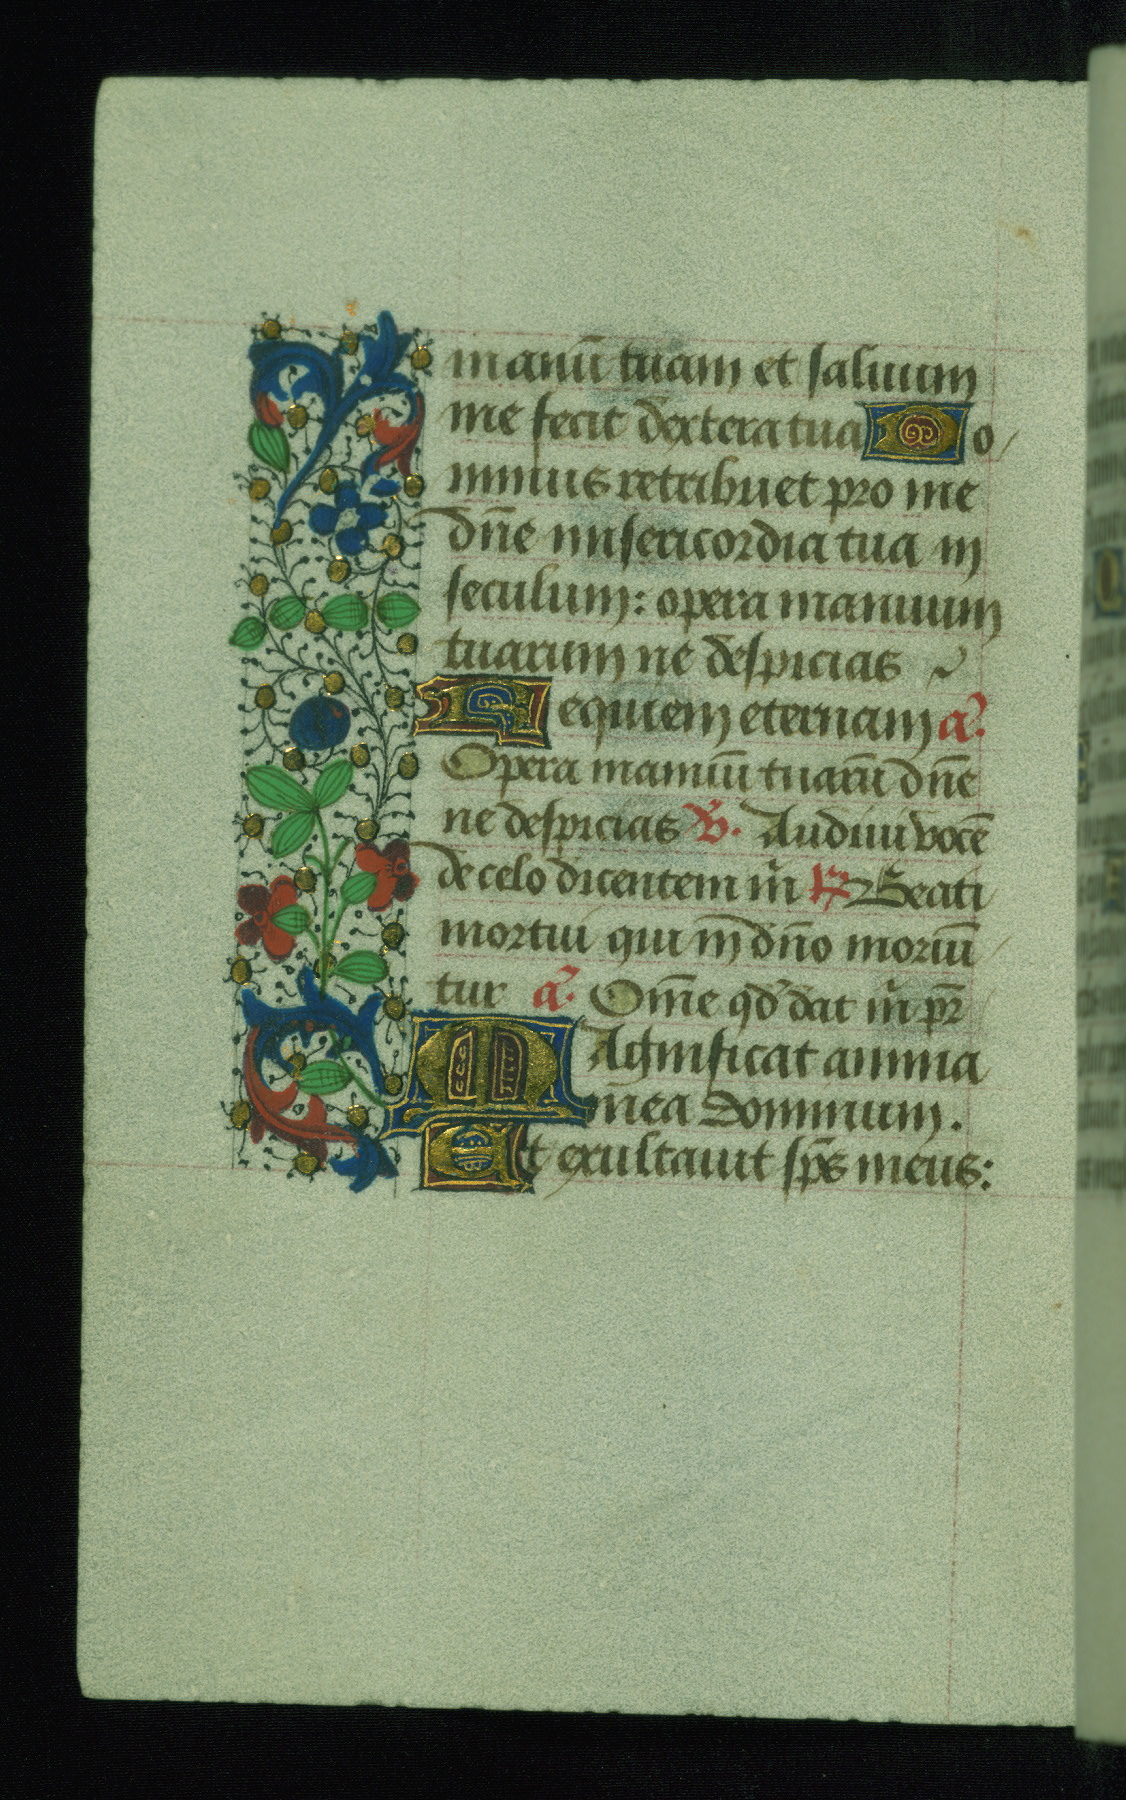 manū tuam et saluum
me fecit dextera tua Do
minus retribuet pro me
dn̄e misericordia tua in
seculum: opera manuum
tuarum ne despicias
Requiem eternam a͞.
Opera manuū tuarū dn̄e
ne despicias V̄. Audiui vocē
de celo dicentem m̄ R̄ Beati
mortui qui in dn̄o moriū
tur a͞. Om̄e qd̄ dat m̄ pr̄
MAgnificat anima
mea Dominum.
Et exultauit sp̄s meus: